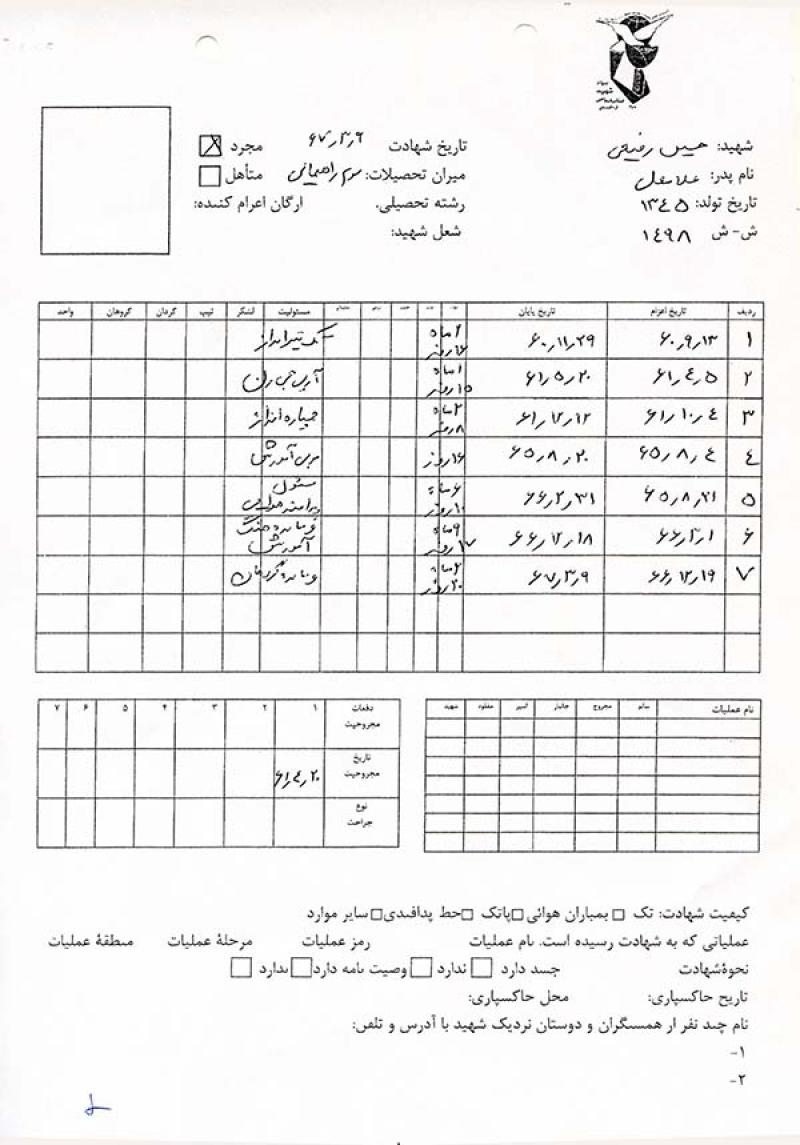 شهید: حسین رفیعی
تاریخ شهادت ۶۷٫۳٫۹
مجرد
نام پدر: غلامعلی
میزان تحصیلات: سوم راهنمائی
متأهل
تاریخ تولد: ۱۳۴۵
رشته تحصیلی.
ارگان اعزام کننده:
ش-ش ۱۴۹۸
شغل شهید:
ردیف تاریخ اعزام تاریخ پایان مسئولیت لشگر تیپ گردان گروهان واحد
۱ ۶۰٫۹٫۱۳ ۶۰٫۱۱٫۲۹ ۲ماه ۱۶روز تک تیرانداز
۲ ۶۱٫۴٫۵ ۶۱٫۵٫۲۰ ۱ماه ۱۵روز آرپی جی زن
۳ ۶۱٫۱۰٫۴ ۶۱٫۱۲٫۱۲ ۲ماه ۸روز خمپاره انداز
۴ ۶۵٫۸٫۴ ۶۵٫۸٫۲۰ ۱۶روز مربی آموزش
۵ ۶۵٫۸٫۲۱ ۶۶٫۲٫۳۱ ۶ماه ۱۰روز مسئول
۶ ۶۶٫۳٫۱ ۶۶٫۱۲٫۱۸ ۹ماه ۱۷روز فرمانده جنگ آموزش
۷ ۶۶٫۱۲٫۱۹ ۶۷٫۳٫۹ ۲ماه ۲۰روز فرمانده گروهان
نام عملیات سالم مجروح جانباز اسیر مفقود شهید
دفعات مجروحیت ۱ ۲ ۳ ۴ ۵ ۶ ۷
تاریخ مجروحیت ۶۱٫۴٫۲۰
نوع جراحت
کیفیت شهادت: تک بمباران هوائی پاتک خط پدافندی سایر موارد
عملیاتی که به شهادت رسیده است. نام عملیات رمز عملیات مرحلهٔ عملیات منطقهٔ عملیات
نحوهٔ شهادت جسد دارد ندارد وصیت نامه دارد ندارد
تاریخ خاکسپاری: محل خاکسپاری:
نام چند نفر از همسنگران و دوستان نزدیک شهید با آدرس و تلفن:
۱-
۲-